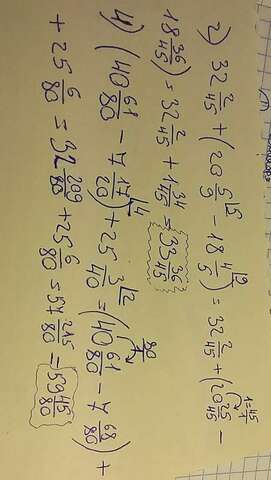 2) 32 2/45 + (20 5/9 - 18 4/5) = 32 2/45 + (20 25/45 -
18 36/45) = 32 2/45 + 1 34/45 = 33 36/45
4) (40 61/80 - 7 17/20) + 25 3/40 = (40 61/80 - 7 68/80) +
+ 25 6/80 = 32 209/80 + 25 6/80 = 57 215/80 = 59 55/80